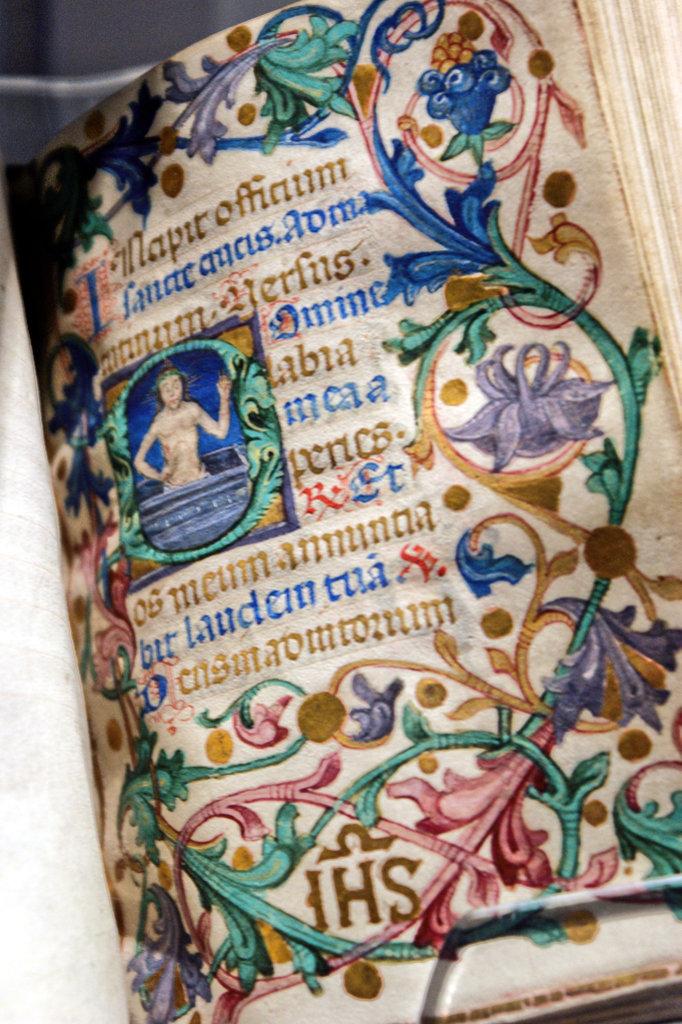 Incipit officium
sancte crucis. Ad ma
tutinum. Versus.
Domine
labia
mea a
peries.
R. Et
os meum annuncia
bit laudem tuā V.
Deus in adiutorium
IHS